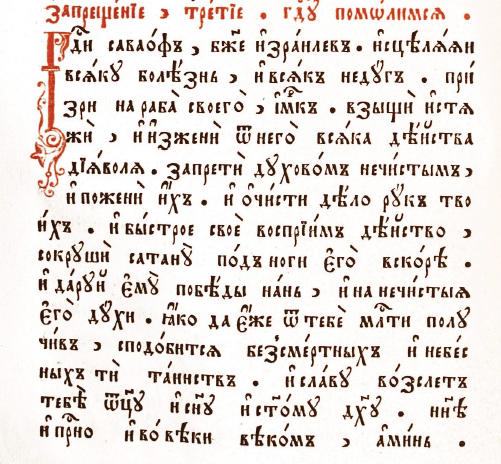 Запреще́нїе , тре́тїе . гд҇ꙋ помо́лимсѧ .
Гд҇и саваѡ́ѳъ , бж҃е і҆зра́илевъ . и҆сцѣлѧ́ѧи
всѧ́кꙋ болѣ́знь , и҆всѧ́къ недꙋ́гъ . при́
зри нараба̀ своего̀ , і҆́мкъ . взыщѝ и҆стѧ
жѝ , и҆и҆зженѝ ѿнего̀ всѧ́ка дѣ́йства
дїѧ́волѧ . запретѝ дꙋ́ховомъ нечи́стымъ ,
и҆пожени̇̀ и҆́хъ . и҆ ѻ҆чи́сти дѣ́ло рꙋкъ тво
и́хъ . и҆бы́строе своѐ воспрїи́мъ дѣ́йство ,
сокрꙋшѝ сатанꙋ̀ по́дъноги є҆гѡ̀ вско́рѣ .
и҆дарꙋ́й є҆мꙋ̀ побѣ́ды на́нь , и҆нанечи́стыѧ
є҆гѡ̀ дꙋ́хи . ꙗ҆́ко да є҆́же ѿтебѐ мл҇ти полꙋ
чи́въ , сподо́битсѧ безсме́ртныхъ и҆небе́с
ныхъ тѝ та́инствъ . и҆сла́вꙋ во́злетъ
тебѣ̀ ѿц҃ꙋ и҆сн҃ꙋ и҆ст҃о́мꙋ дх҃ꙋ . нн҃ѣ
и҆при҇но и҆во́вѣки вѣко́мъ , а҆ми́нь .